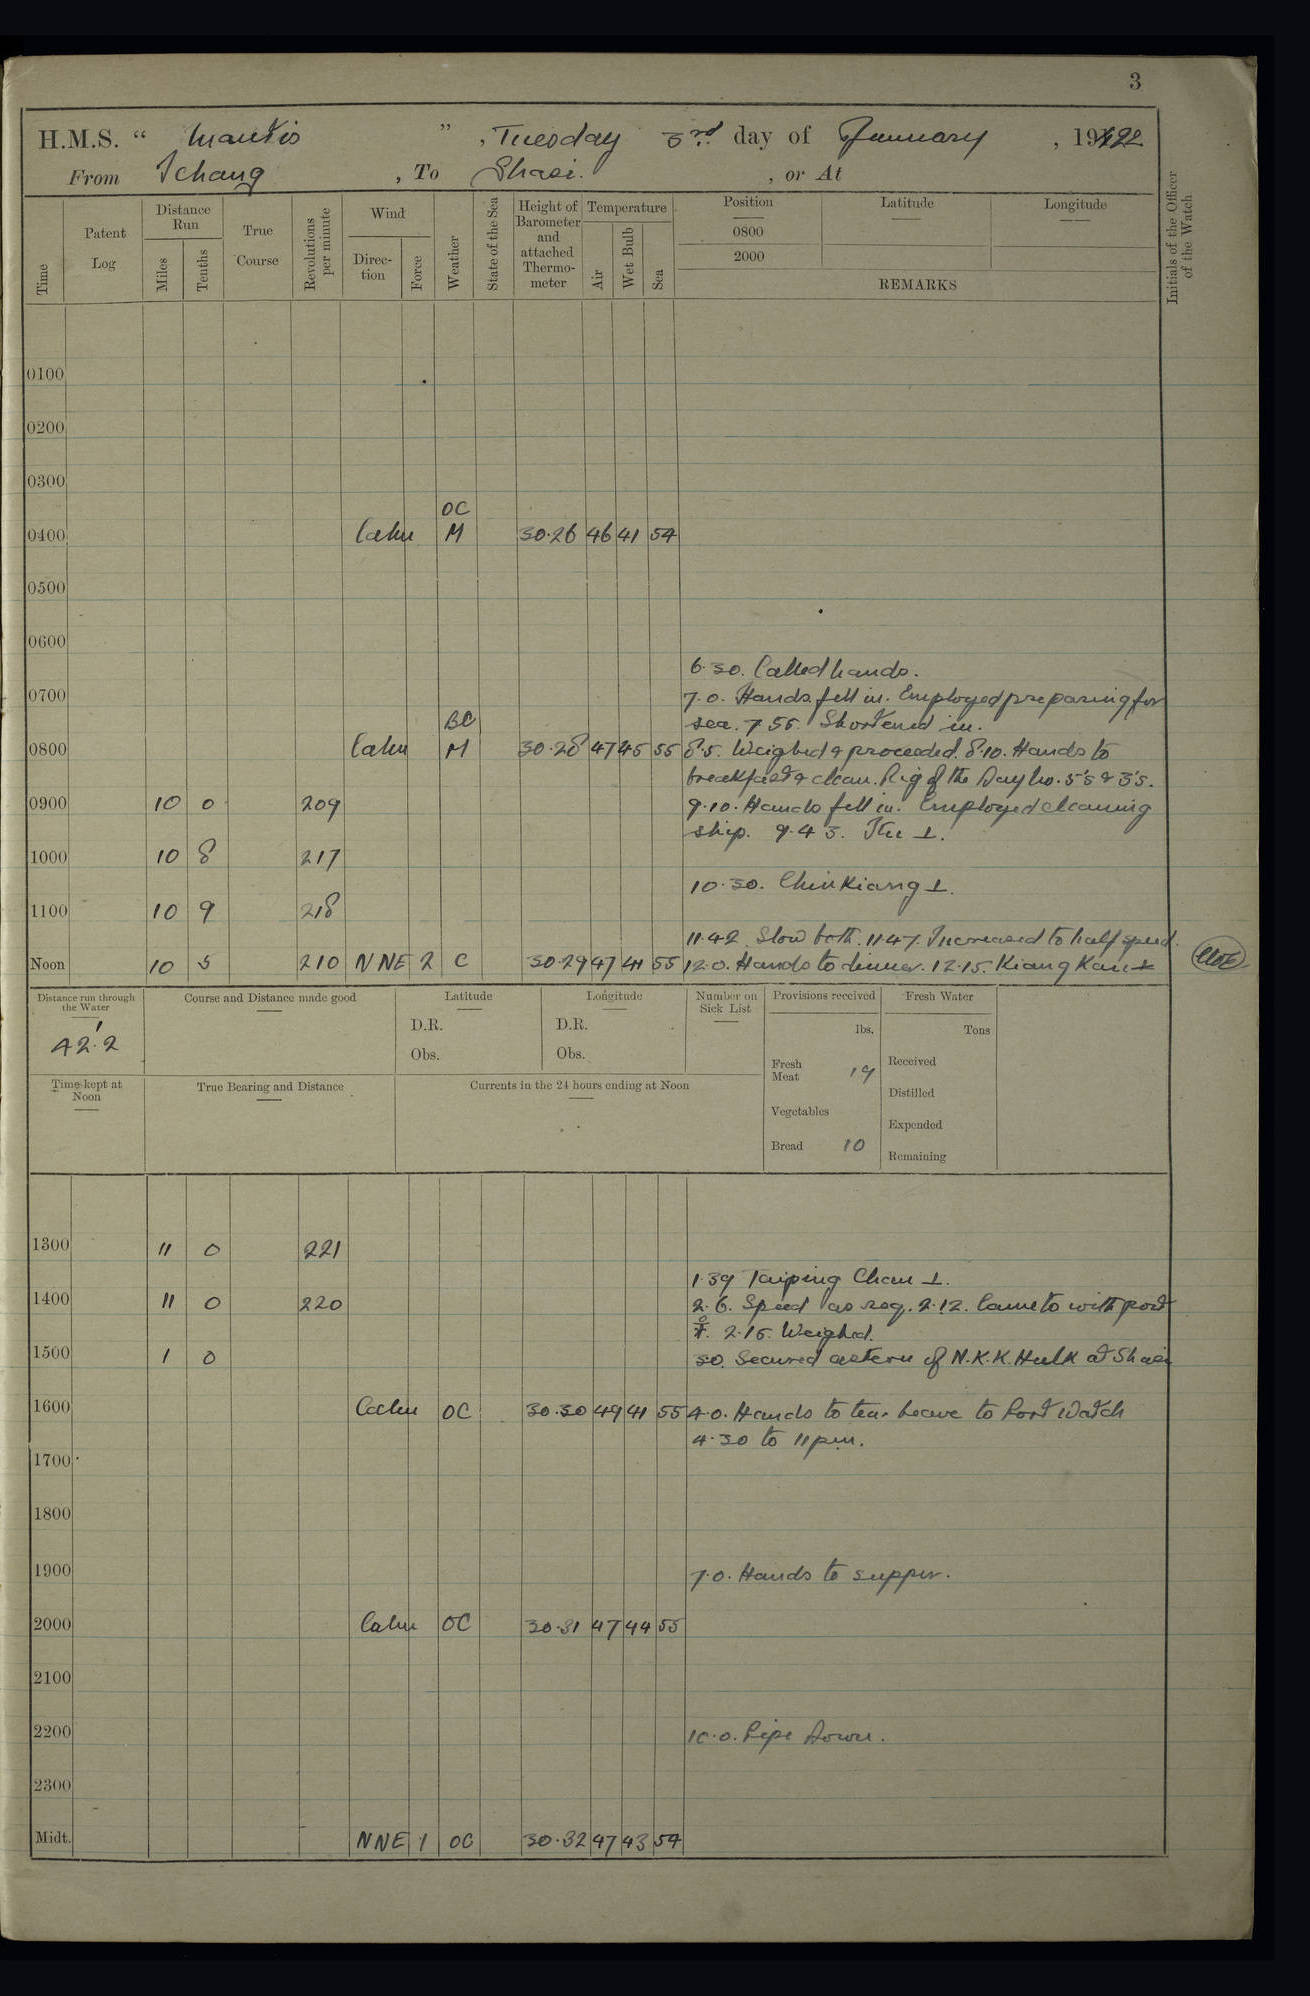 3
H.M.S. “ Mantis ” , Tuesday 3rd day of January , 1922
From Ichang , To Shasi. , or At
Time
Patent Log
Distance Run
Miles
Tenths
True Course
Revolutions per minute
Wind
Direction
Force
Weather
State of the Sea
Height of Barometer and attached Thermometer
Temperature
Air
Wet Bulb
Sea
Position
0800
2000
Latitude
Longitude
REMARKS
Initials of the Officer of the Watch
0100
0200
0300
OC
0400 Calm M 30.26 46 41 54
0500
0600
6.30. Called hands.
0700 7.0. Hands fell in. Employed preparing for
BC sea. 7.55. Shortened in.
0800 Calm M 30.28 47 45 55 8.5. Weighed & proceeded. 8.10. Hands to
breakfast & clean. Rig of the Day No. 5's & 3's.
0900 10 0 209 9.10. Hands fell in. Employed cleaning
ship. 9.43. Itu ⊥.
1000 10 8 217
10.30. Chinkiang ⊥.
1100 10 9 218
11.42. Slow both. 11.47. Increased to half speed.
Noon 10 5 210 NNE 2 C 30.29 47 41 55 12.0. Hands to dinner. 12.15. Kiang Kau ⊥
Distance run through the Water
42.2'
Course and Distance made good
Latitude
D.R.
Obs.
Longitude
D.R.
Obs.
Number on Sick List
Provisions received
lbs.
Fresh Meat 19
Vegetables
Bread 10
Fresh Water
Tons
Received
Distilled
Expended
Remaining
Time kept at Noon
True Bearing and Distance
Currents in the 24 hours ending at Noon
1300 11 0 221
1.39 Taiping Chau ⊥.
1400 11 0 220 2.6. Speed as req. 2.12. Came to with port
2.15. Weighed.
1500 1 0 30. Secured astern of N.K.K. Hulk at Shasi
1600 Calm OC 30.30 49 41 55 4.0. Hands to tea. Leave to Port Watch
4.30 to 11 pm.
1700
1800
1900 7.0. Hands to supper.
2000 Calm OC 30.31 47 44 55
2100
2200 10.0. Pipe Down.
2300
Midt. NNE 1 OC 30.32 47 43 54